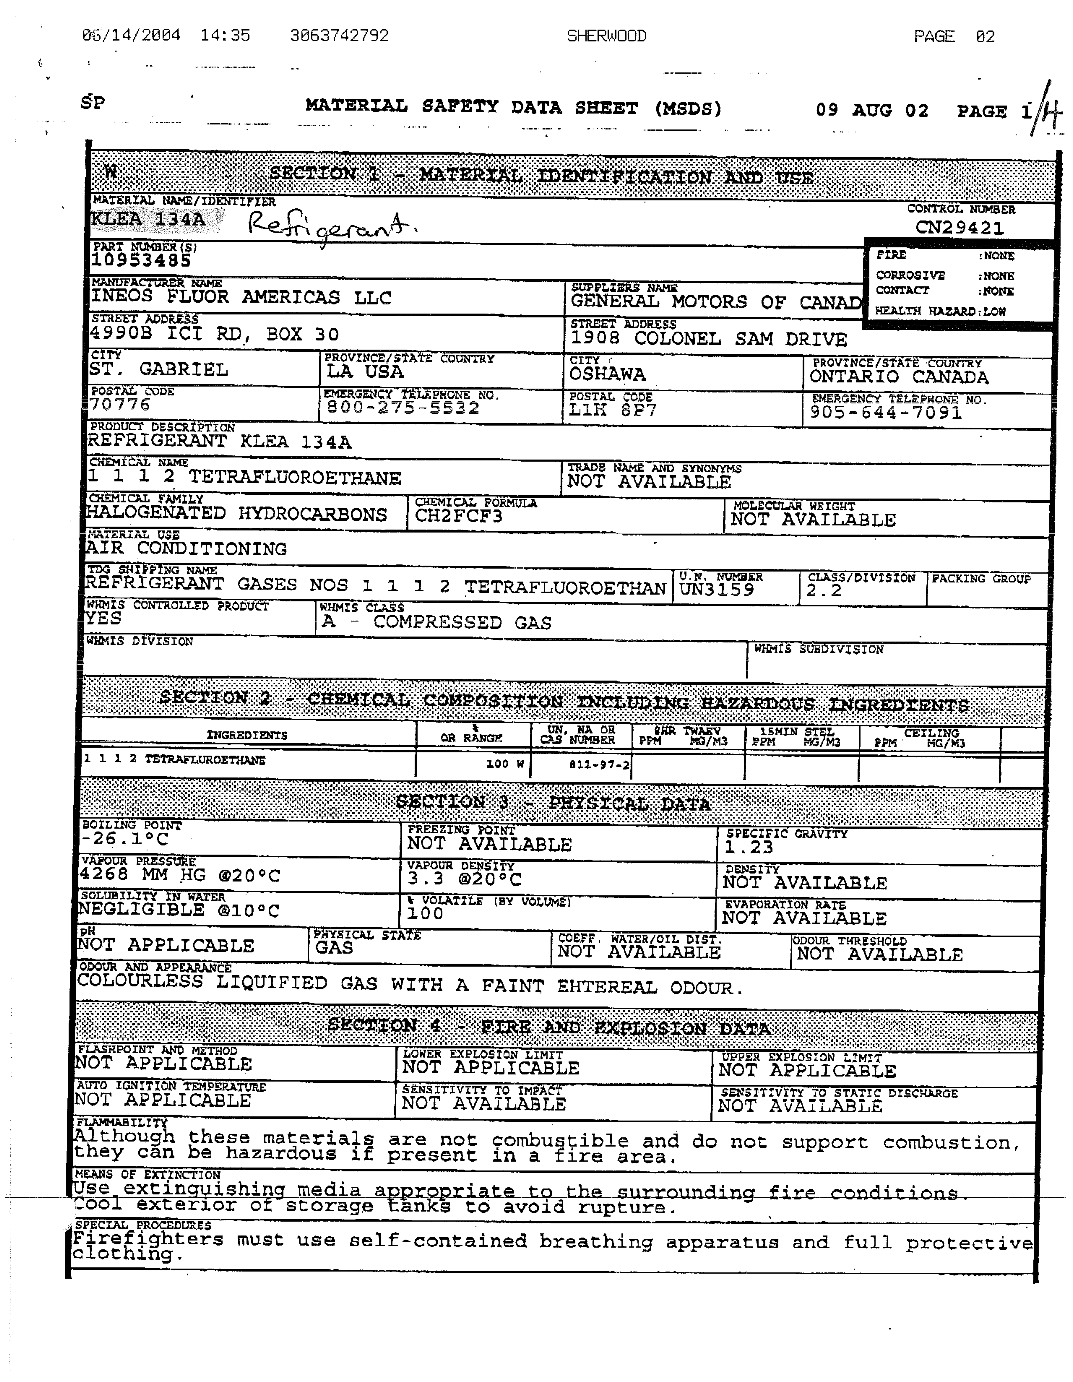 06/14/2004 14:35 3063742792 SHERWOOD PAGE 02
SP MATERIAL SAFETY DATA SHEET (MSDS) 09 AUG 02 PAGE 1/4
W SECTION 1 - MATERIAL IDENTIFICATION AND USE
MATERIAL NAME/IDENTIFIER
KLEA 134A Refrigerant.
CONTROL NUMBER
CN29421
PART NUMBER(S)
10953485
FIRE :NONE
CORROSIVE :NONE
CONTACT :NONE
HEALTH HAZARD:LOW
MANUFACTURER NAME SUPPLIERS NAME
INEOS FLUOR AMERICAS LLC GENERAL MOTORS OF CANAD
STREET ADDRESS STREET ADDRESS
4990B ICI RD, BOX 30 1908 COLONEL SAM DRIVE
CITY PROVINCE/STATE COUNTRY CITY PROVINCE/STATE COUNTRY
ST. GABRIEL LA USA OSHAWA ONTARIO CANADA
POSTAL CODE EMERGENCY TELEPHONE NO. POSTAL CODE EMERGENCY TELEPHONE NO.
70776 800-275-5532 L1H 8P7 905-644-7091
PRODUCT DESCRIPTION
REFRIGERANT KLEA 134A
CHEMICAL NAME TRADE NAME AND SYNONYMS
1 1 1 2 TETRAFLUOROETHANE NOT AVAILABLE
CHEMICAL FAMILY CHEMICAL FORMULA MOLECULAR WEIGHT
HALOGENATED HYDROCARBONS CH2FCF3 NOT AVAILABLE
MATERIAL USE
AIR CONDITIONING
TDG SHIPPING NAME U.N. NUMBER CLASS/DIVISION PACKING GROUP
REFRIGERANT GASES NOS 1 1 1 2 TETRAFLUOROETHAN UN3159 2.2
WHMIS CONTROLLED PRODUCT WHMIS CLASS
YES A - COMPRESSED GAS
WHMIS DIVISION WHMIS SUBDIVISION
SECTION 2 - CHEMICAL COMPOSITION INCLUDING HAZARDOUS INGREDIENTS
INGREDIENTS % OR RANGE UN, NA OR CAS NUMBER 8HR TWAEV PPM MG/M3 15MIN STEL PPM MG/M3 CEILING PPM MG/M3
1 1 1 2 TETRAFLUROETHANE 100 W 811-97-2
SECTION 3 - PHYSICAL DATA
BOILING POINT FREEZING POINT SPECIFIC GRAVITY
-26.1°C NOT AVAILABLE 1.23
VAPOUR PRESSURE VAPOUR DENSITY DENSITY
4268 MM HG @20°C 3.3 @20°C NOT AVAILABLE
SOLUBILITY IN WATER % VOLATILE (BY VOLUME) EVAPORATION RATE
NEGLIGIBLE @10°C 100 NOT AVAILABLE
pH PHYSICAL STATE COEFF. WATER/OIL DIST. ODOUR THRESHOLD
NOT APPLICABLE GAS NOT AVAILABLE NOT AVAILABLE
ODOUR AND APPEARANCE
COLOURLESS LIQUIFIED GAS WITH A FAINT EHTEREAL ODOUR.
SECTION 4 - FIRE AND EXPLOSION DATA
FLASHPOINT AND METHOD LOWER EXPLOSION LIMIT UPPER EXPLOSION LIMIT
NOT APPLICABLE NOT APPLICABLE NOT APPLICABLE
AUTO IGNITION TEMPERATURE SENSITIVITY TO IMPACT SENSITIVITY TO STATIC DISCHARGE
NOT APPLICABLE NOT AVAILABLE NOT AVAILABLE
FLAMMABILITY
Although these materials are not combustible and do not support combustion,
they can be hazardous if present in a fire area.
MEANS OF EXTINCTION
Use extinguishing media appropriate to the surrounding fire conditions.
Cool exterior of storage tanks to avoid rupture.
SPECIAL PROCEDURES
Firefighters must use self-contained breathing apparatus and full protective
clothing.